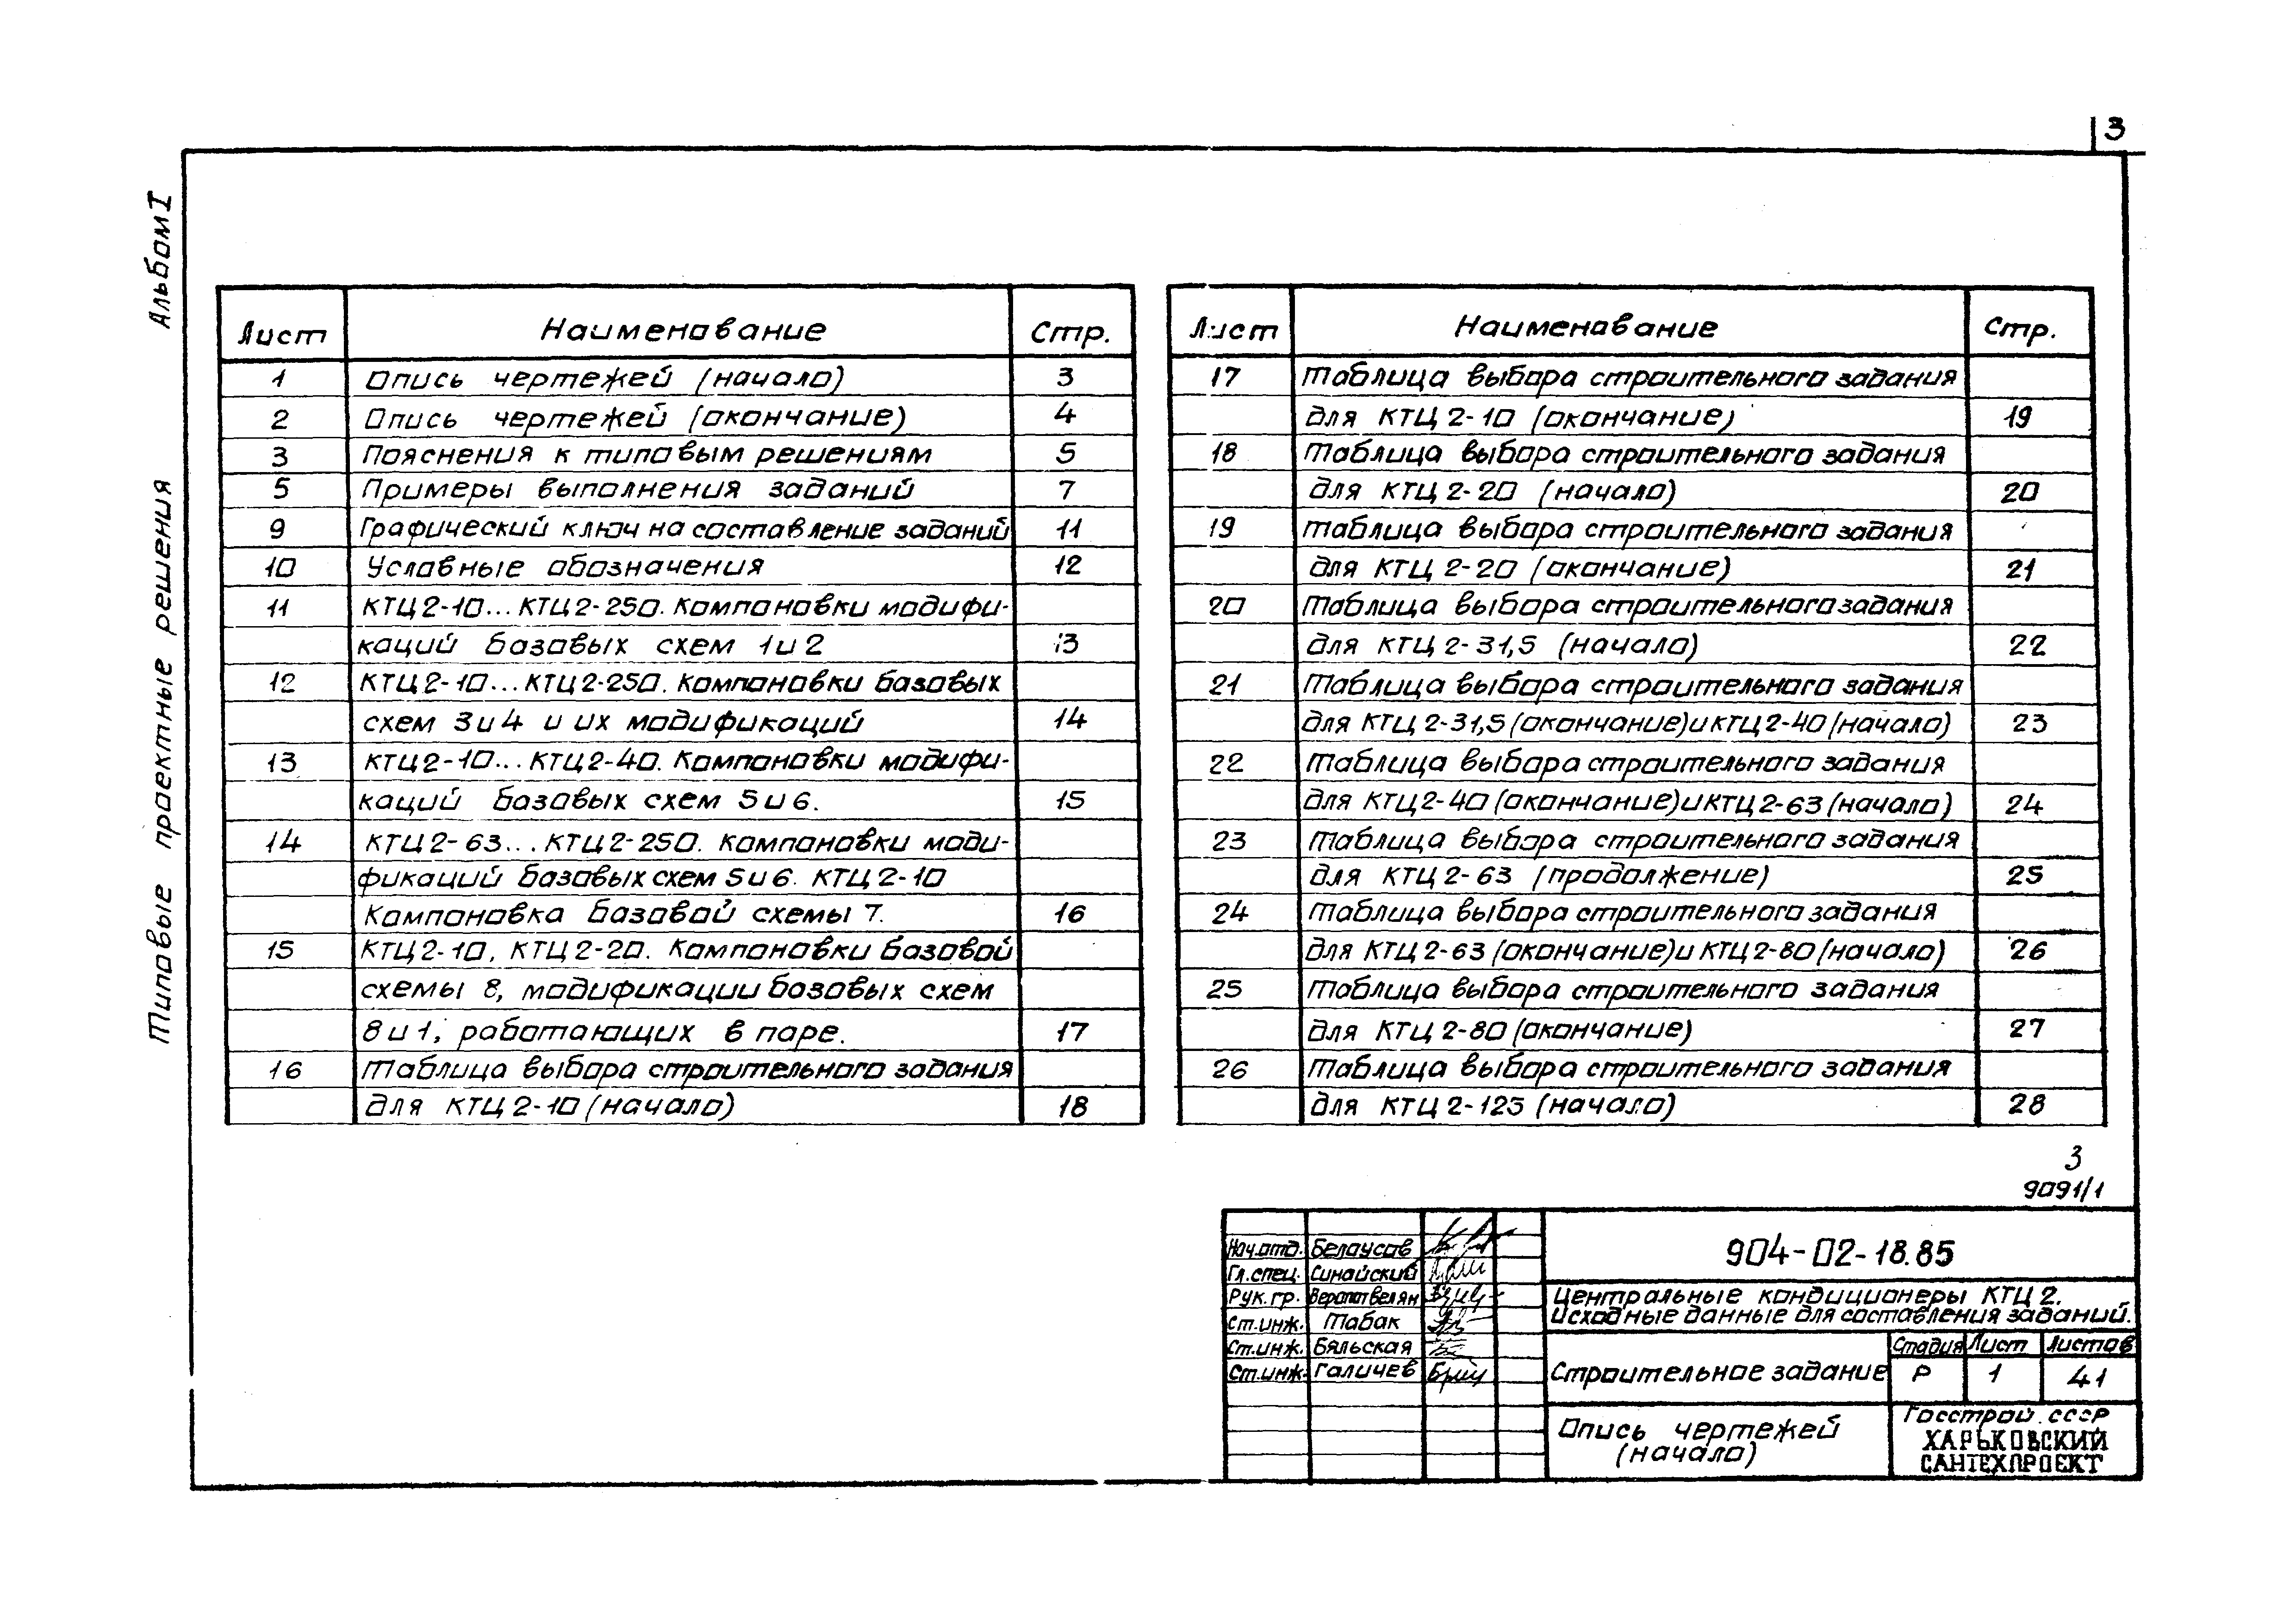 3
Альбом I
Типовые проектные решения
Лист Наименование Стр.
1 Опись чертежей (начало) 3
2 Опись чертежей (окончание) 4
3 Пояснения к типовым решениям 5
5 Примеры выполнения заданий 7
9 Графический ключ на составление заданий 11
10 Условные обозначения 12
11 КТЦ2-10...КТЦ2-250. Компоновки модифи-
каций базовых схем 1 и 2 13
12 КТЦ2-10...КТЦ2-250. Компоновки базовых
схем 3 и 4 и их модификаций 14
13 КТЦ2-10...КТЦ2-40. Компоновки модифи-
каций базовых схем 5 и 6. 15
14 КТЦ2-63...КТЦ2-250. Компоновки моди-
фикаций базовых схем 5 и 6. КТЦ2-10
Компоновка базовой схемы 7. 16
15 КТЦ2-10, КТЦ2-20. Компоновки базовой
схемы 8, модификации базовых схем
8 и 1, работающих в паре. 17
16 Таблица выбора строительного задания
для КТЦ2-10 (начало) 18
Лист Наименование Стр.
17 Таблица выбора строительного задания
для КТЦ2-10 (окончание) 19
18 Таблица выбора строительного задания
для КТЦ2-20 (начало) 20
19 Таблица выбора строительного задания
для КТЦ2-20 (окончание) 21
20 Таблица выбора строительного задания
для КТЦ2-31,5 (начало) 22
21 Таблица выбора строительного задания
для КТЦ2-31,5 (окончание) и КТЦ2-40 (начало) 23
22 Таблица выбора строительного задания
для КТЦ2-40 (окончание) и КТЦ2-63 (начало) 24
23 Таблица выбора строительного задания
для КТЦ2-63 (продолжение) 25
24 Таблица выбора строительного задания
для КТЦ2-63 (окончание) и КТЦ2-80 (начало) 26
25 Таблица выбора строительного задания
для КТЦ2-80 (окончание) 27
26 Таблица выбора строительного задания
для КТЦ2-125 (начало) 28
3
9091/1
Нач.отд. Белоусов
Гл.спец. Синайский
Рук.гр.
Ст.инж. Табак
Ст.инж. Бяльская
Ст.инж. Галичев
904-02-18.85
Центральные кондиционеры КТЦ2.
Исходные данные для составления заданий.
Строительное задание
Стадия Лист Листов
Р 1 41
Опись чертежей
(начало)
Госстрой СССР
ХАРЬКОВСКИЙ
САНТЕХПРОЕКТ